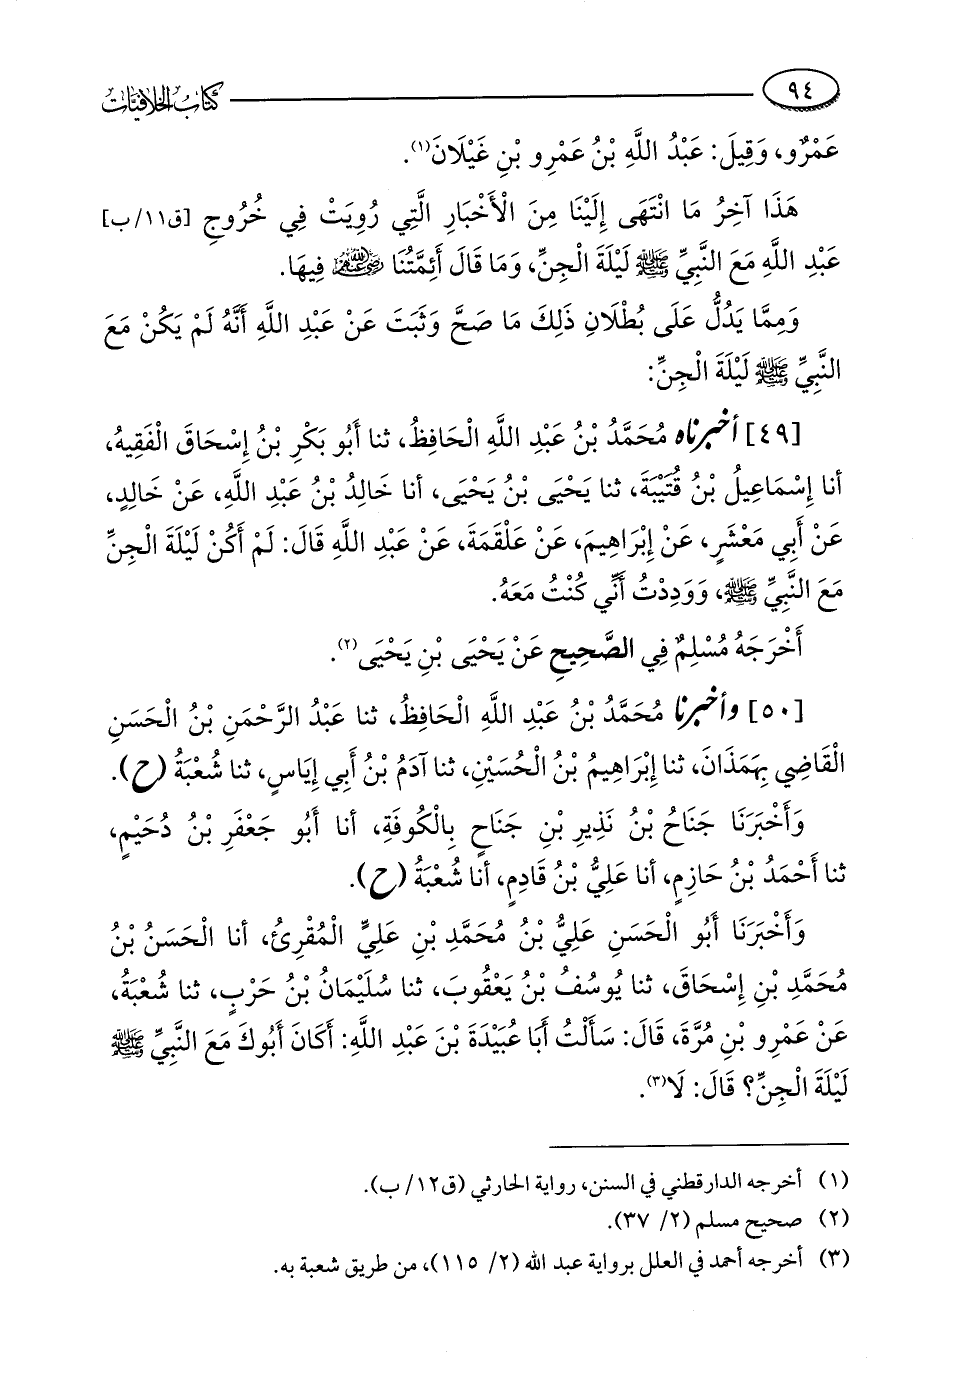 ٩٤ كتاب الخلافيات
عَمْرٌو، وَقِيلَ: عَبْدُ اللَّهِ بْنُ عَمْرِو بْنِ غَيْلَانَ(١).
هَذَا آخِرُ مَا انْتَهَى إِلَيْنَا مِنَ الْأَخْبَارِ الَّتِي رُوِيَتْ فِي خُرُوجِ [ق١١/ب]
عَبْدِ اللَّهِ مَعَ النَّبِيِّ ﷺ لَيْلَةَ الْجِنِّ، وَمَا قَالَ أَئِمَّتُنَا رضي الله عنهم فِيهَا.
وَمِمَّا يَدُلُّ عَلَى بُطْلَانِ ذَلِكَ مَا صَحَّ وَثَبَتَ عَنْ عَبْدِ اللَّهِ أَنَّهُ لَمْ يَكُنْ مَعَ
النَّبِيِّ ﷺ لَيْلَةَ الْجِنِّ:
[٤٩] أخبرناه مُحَمَّدُ بْنُ عَبْدِ اللَّهِ الْحَافِظُ، ثنا أَبُو بَكْرِ بْنُ إِسْحَاقَ الْفَقِيهُ،
أنا إِسْمَاعِيلُ بْنُ قُتَيْبَةَ، ثنا يَحْيَى بْنُ يَحْيَى، أنا خَالِدُ بْنُ عَبْدِ اللَّهِ، عَنْ خَالِدٍ،
عَنْ أَبِي مَعْشَرٍ، عَنْ إِبْرَاهِيمَ، عَنْ عَلْقَمَةَ، عَنْ عَبْدِ اللَّهِ قَالَ: لَمْ أَكُنْ لَيْلَةَ الْجِنِّ
مَعَ النَّبِيِّ ﷺ، وَوَدِدْتُ أَنِّي كُنْتُ مَعَهُ.
أَخْرَجَهُ مُسْلِمٌ فِي الصَّحِيحِ عَنْ يَحْيَى بْنِ يَحْيَى(٢).
[٥٠] وأخبرنا مُحَمَّدُ بْنُ عَبْدِ اللَّهِ الْحَافِظُ، ثنا عَبْدُ الرَّحْمَنِ بْنُ الْحَسَنِ
الْقَاضِي بِهَمَذَانَ، ثنا إِبْرَاهِيمُ بْنُ الْحُسَيْنِ، ثنا آدَمُ بْنُ أَبِي إِيَاسٍ، ثنا شُعْبَةُ (ح).
وَأَخْبَرَنَا جَنَاحُ بْنُ نَذِيرِ بْنِ جَنَاحٍ بِالْكُوفَةِ، أنا أَبُو جَعْفَرِ بْنُ دُحَيْمٍ،
ثنا أَحْمَدُ بْنُ حَازِمٍ، أنا عَلِيُّ بْنُ قَادِمٍ، أنا شُعْبَةُ (ح).
وَأَخْبَرَنَا أَبُو الْحَسَنِ عَلِيُّ بْنُ مُحَمَّدِ بْنِ عَلِيٍّ الْمُقْرِئُ، أنا الْحَسَنُ بْنُ
مُحَمَّدِ بْنِ إِسْحَاقَ، ثنا يُوسُفُ بْنُ يَعْقُوبَ، ثنا سُلَيْمَانُ بْنُ حَرْبٍ، ثنا شُعْبَةُ،
عَنْ عَمْرِو بْنِ مُرَّةَ، قَالَ: سَأَلْتُ أَبَا عُبَيْدَةَ بْنَ عَبْدِ اللَّهِ: أَكَانَ أَبُوكَ مَعَ النَّبِيِّ ﷺ
لَيْلَةَ الْجِنِّ؟ قَالَ: لَا(٣).
(١) أخرجه الدارقطني في السنن، رواية الحارثي (ق١٢/ ب).
(٢) صحيح مسلم (٢/ ٣٧).
(٣) أخرجه أحمد في العلل برواية عبد الله (٢/ ١١٥)، من طريق شعبة به.